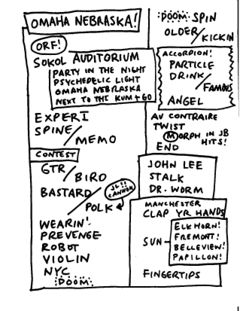 OMAHA NEBRASKA!
ORF!
SOKOL AUDITORIUM
PARTY IN THE NIGHT
PSYCHEDELIC LIGHT
OMAHA NEBRASKA
NEXT TO THE KUM + GO
EXPERI
SPINE/
MEMO
CONTEST
GTR/
BIRD
BASTARD/
POLK
WEARIN'
PREVENGE
ROBOT
VIOLIN
NYC
:DOOM:
:DOOM: SPIN
OLDER/
KICKIN
ACCORDION!
PARTICLE
DRINK/
FAMOUS
ANGEL
AU CONTRAIRE
TWIST
MORPH IN JB
HITS!
END
JOHN LEE
STALK
DR. WORM
MANCHESTER
CLAP YR HANDS
SUN-
ELKHORN!
FREMONT!
BELLEVIEW!
PAPILLON!
FINGERTIPS